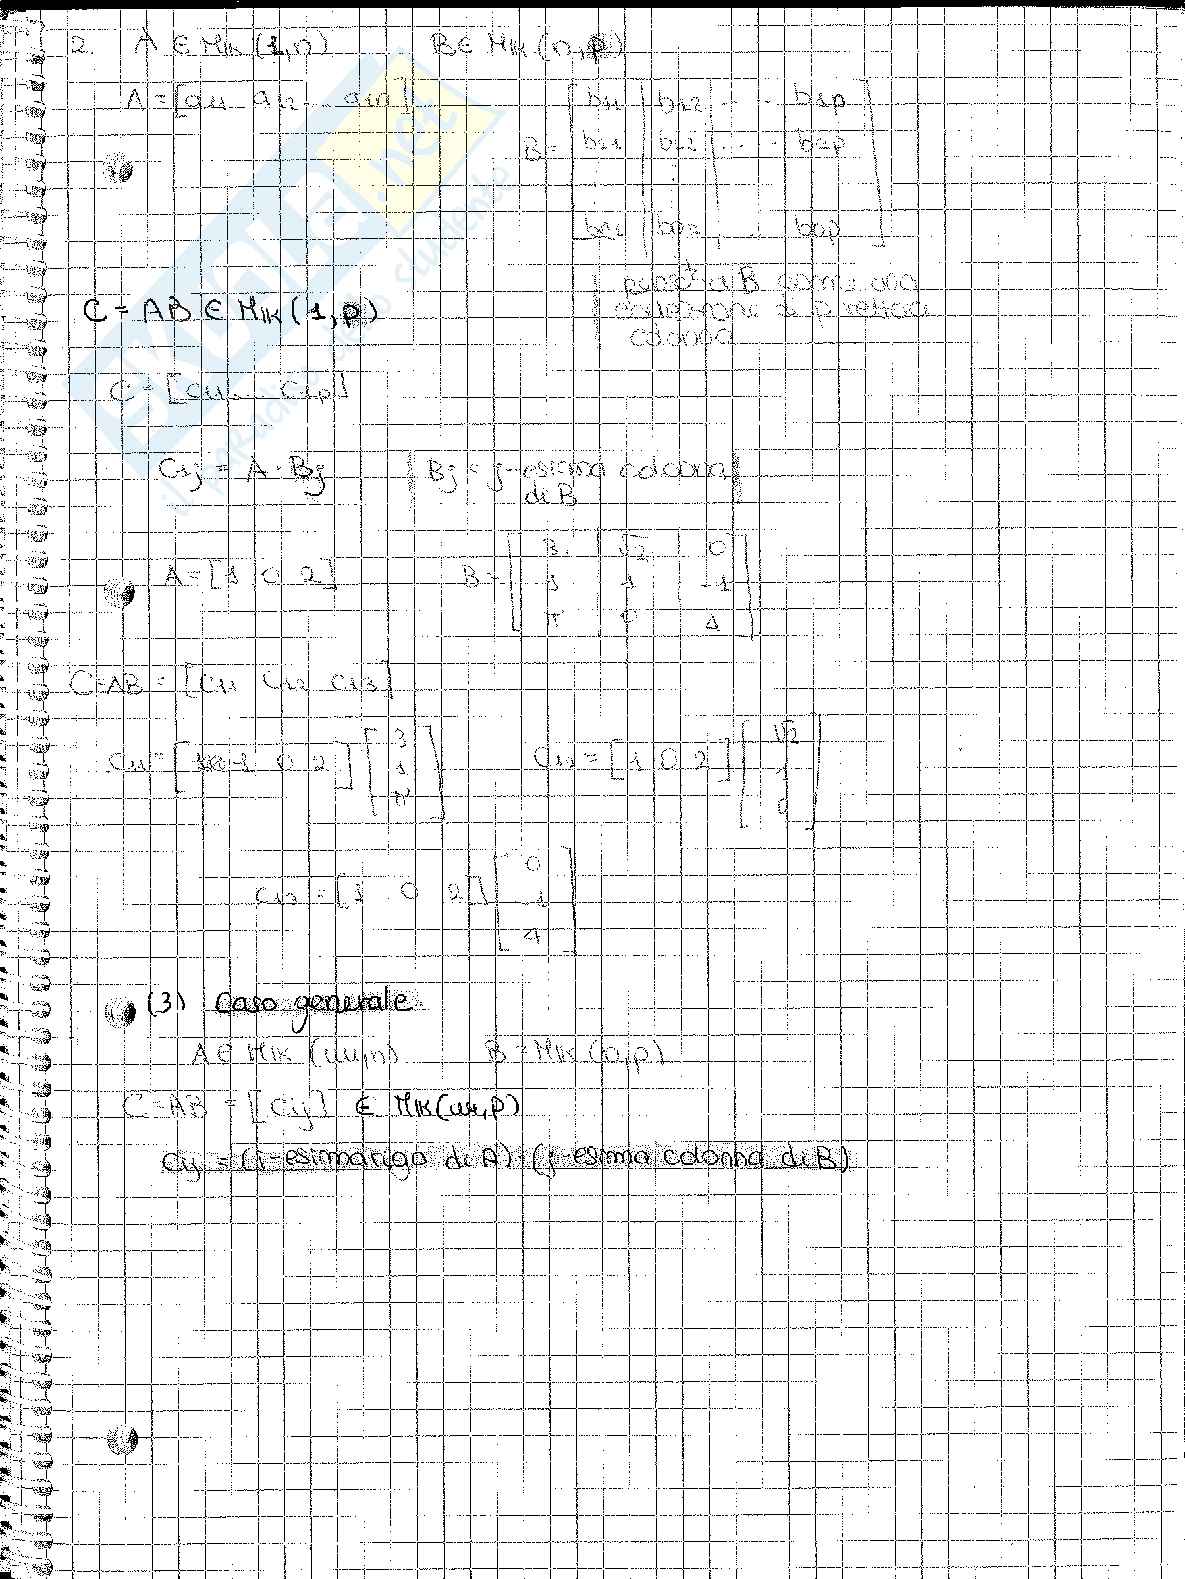 2. A ∈ M_IK (1,n)    B ∈ M_IK (n,p)
A = [a11 a12 ... a1n]
B = [b11 | b12 | ... b1p
b21 | b22 | ... b2p
bn1 | bn2 | ... bnp]
B come una
di p
colonna
C = AB ∈ M_IK (1,p)
C = [c11 ... c1p]
c1j = A · Bj    | Bj = j-esima colonna |
di B
A = [1 0 2]    B = [3 | √2 | 0
1 | 1 | -1
π | 0 | 4]
C = AB = [c11 c12 c13]
c11 = [1 0 2] [3 1 π]    c12 = [1 0 2] [√2 1 0]
c13 = [1 0 2] [0 -1 4]
(3) Caso generale
A ∈ M_IK (m,n)    B = M_IK (n,p)
C = AB = [cij] ∈ M_IK (m,p)
cij = (i-esima riga di A) · (j-esima colonna di B)